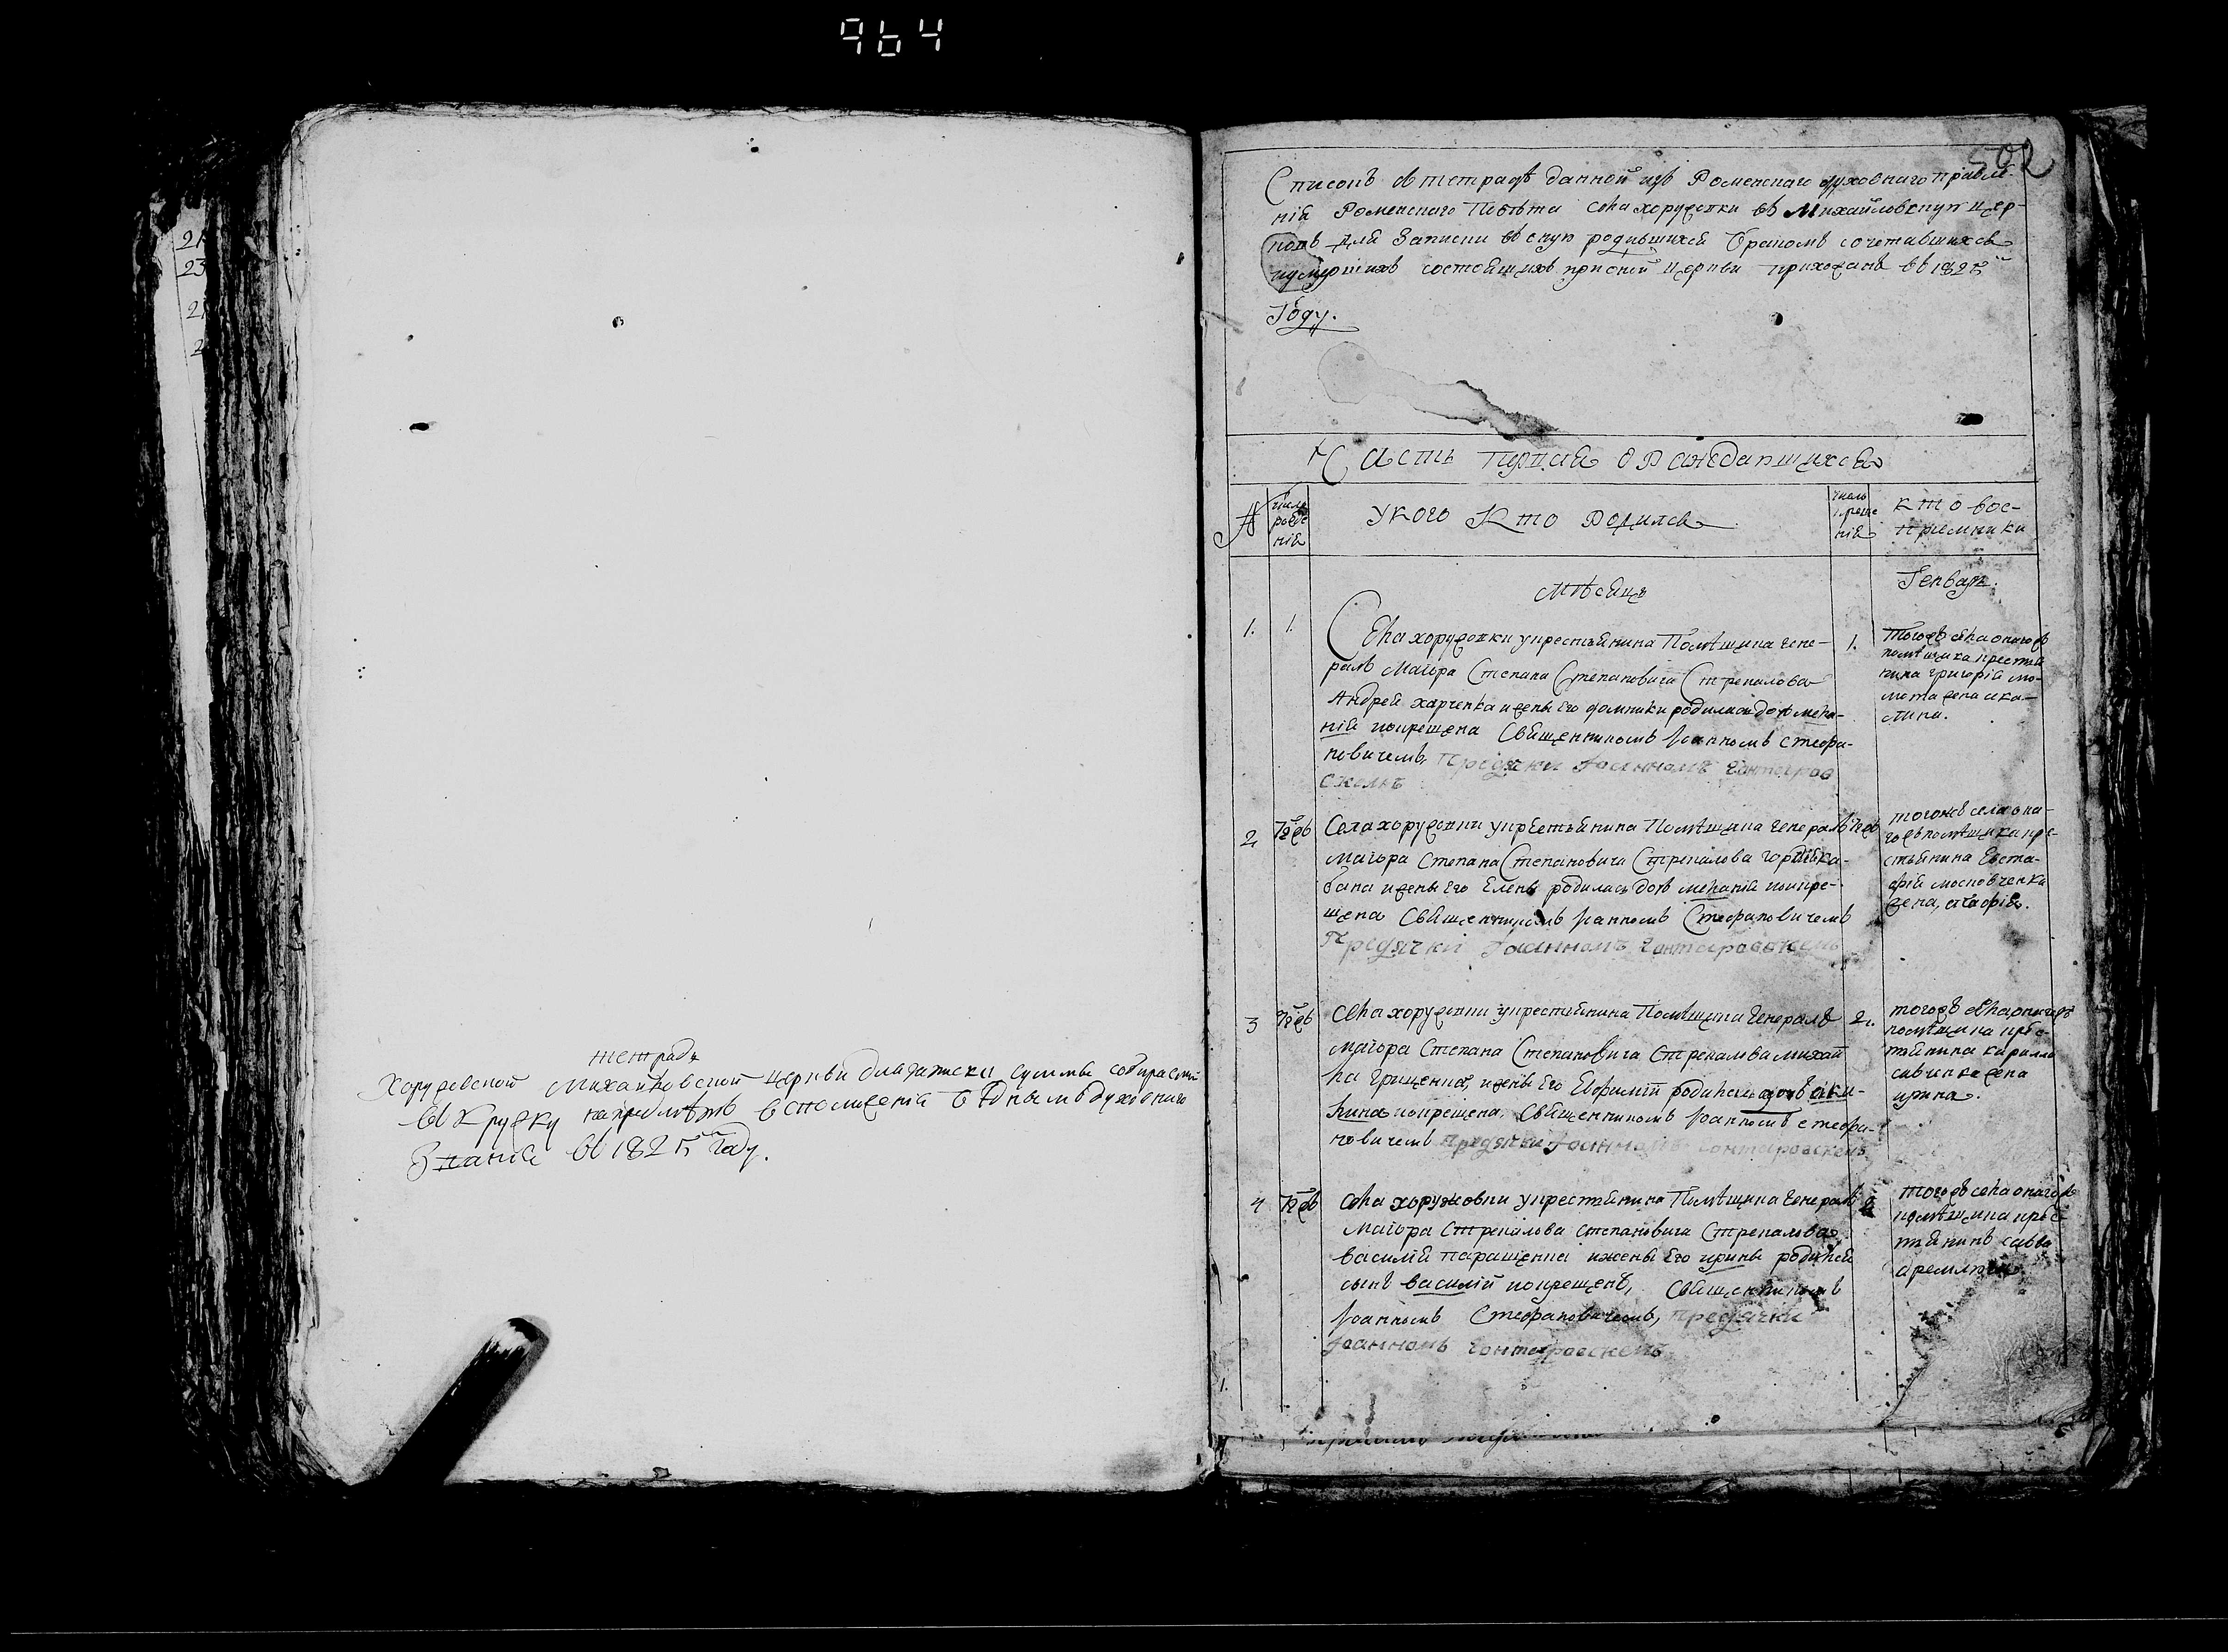 964
21
23
21
2
тетрадь
Хоружевской Михайловской церкви для записки суммы собираемой
въ Кружку на предмѣтъ вспоможенія бѣднымъ духовнаго
Званія въ 1825 году.
502
Списокъ въ тетрадѣ данной изъ Роменскаго духовнаго правле-
нія Роменскаго Повѣта села хоружовки въ Михайловскую цер-
ковь для Записки въ оную родившихся бракомъ сочетавшихся
иумершихъ состоящихъ при оной церкви прихожанъ въ 1825
Году.
Часть первая о Раждавшихся
№
число
рожде
нія
У кого Кто Родился
число
креще
нія
кто вос-
приемники
Мѣсяцъ
Генварь.
1. 1.
Села хоружовки укрестьянина Помѣщика гене-
ралъ Маіора Степана Степановича Стрекалова
Андрей харченка ижены его домники родилась дочь мела-
нія покрещена Священникомъ Іоанномъ Стефа-
новичемъ, Предячки Іоанномъ Гонтаров
скемъ
1.
Тогожъ села онагожъ
помѣщика крестья
нина григорія мо-
мота жена ака-
лина.
2 тожъ
Села хоружовки укрестьянина Помѣщика генералъ
маіора Степана Степановича Стрекалова гордѣя ка-
бана ижены Его Елены родилась дочь меланія покре-
щена Священникомъ Іоанномъ Стефановичемъ
Предячки Іоанномъ Гонтаровскемъ
тожъ
тогожъ села она-
гожъ помѣщика кре-
стьянина Евста-
фія московченка
жена,
3 тожъ
села хоружовки укрестьянина Помѣщика Генералъ
маіора Степана Степановича Стрекалова михай
ла грищенка, ижены Его Евфиміи родилась дочь аки-
лина покрещена, Священникомъ Іоанномъ стефа-
новичемъ предячки Іоанномъ Гонтаровскемъ
2.
тогожъ села онагожъ
помѣщика кре-
стьянина кирилла
савченка жена
ирина.
4 тожъ
села хоружовки укрестьянина Помѣщика Генералъ
маіора Стрекалова степановича Стрекалова
василій паращенка ижены Его ирины родился
сынъ василій покрещенъ, Священникомъ
Іоанномъ Стефановичемъ, предячки
Іоанномъ Гонтаровскемъ
тогожъ села онагожъ
помѣщика кре-
стьянинъ савва